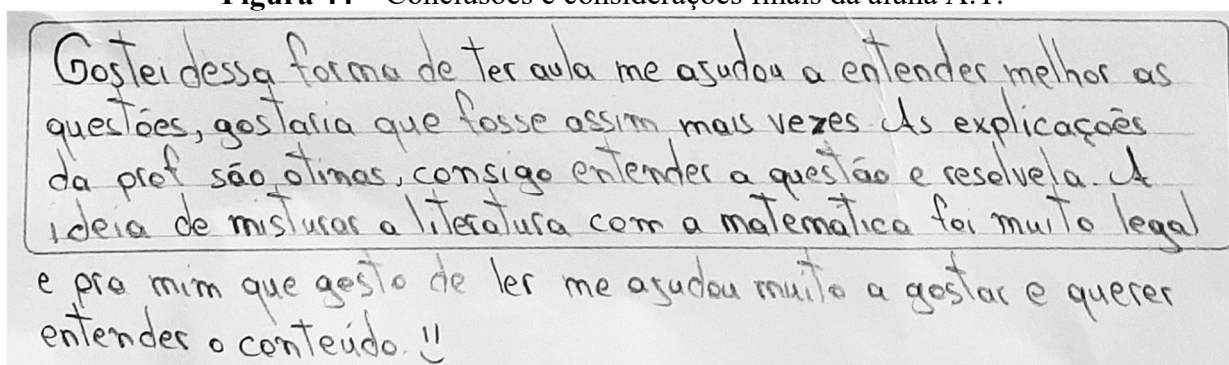 Figura 44 – Conclusões e considerações finais da aluna A.T.
Gostei dessa forma de ter aula me ajudou a entender melhor as
questões, gostaria que fosse assim mais vezes. As explicações
da prof são otimas, consigo entender a questão e resolvela. A
ideia de misturar a literatura com a matematica foi muito legal
e pra mim que gosto de ler me ajudou muito a gostar e querer
entender o conteúdo. !!